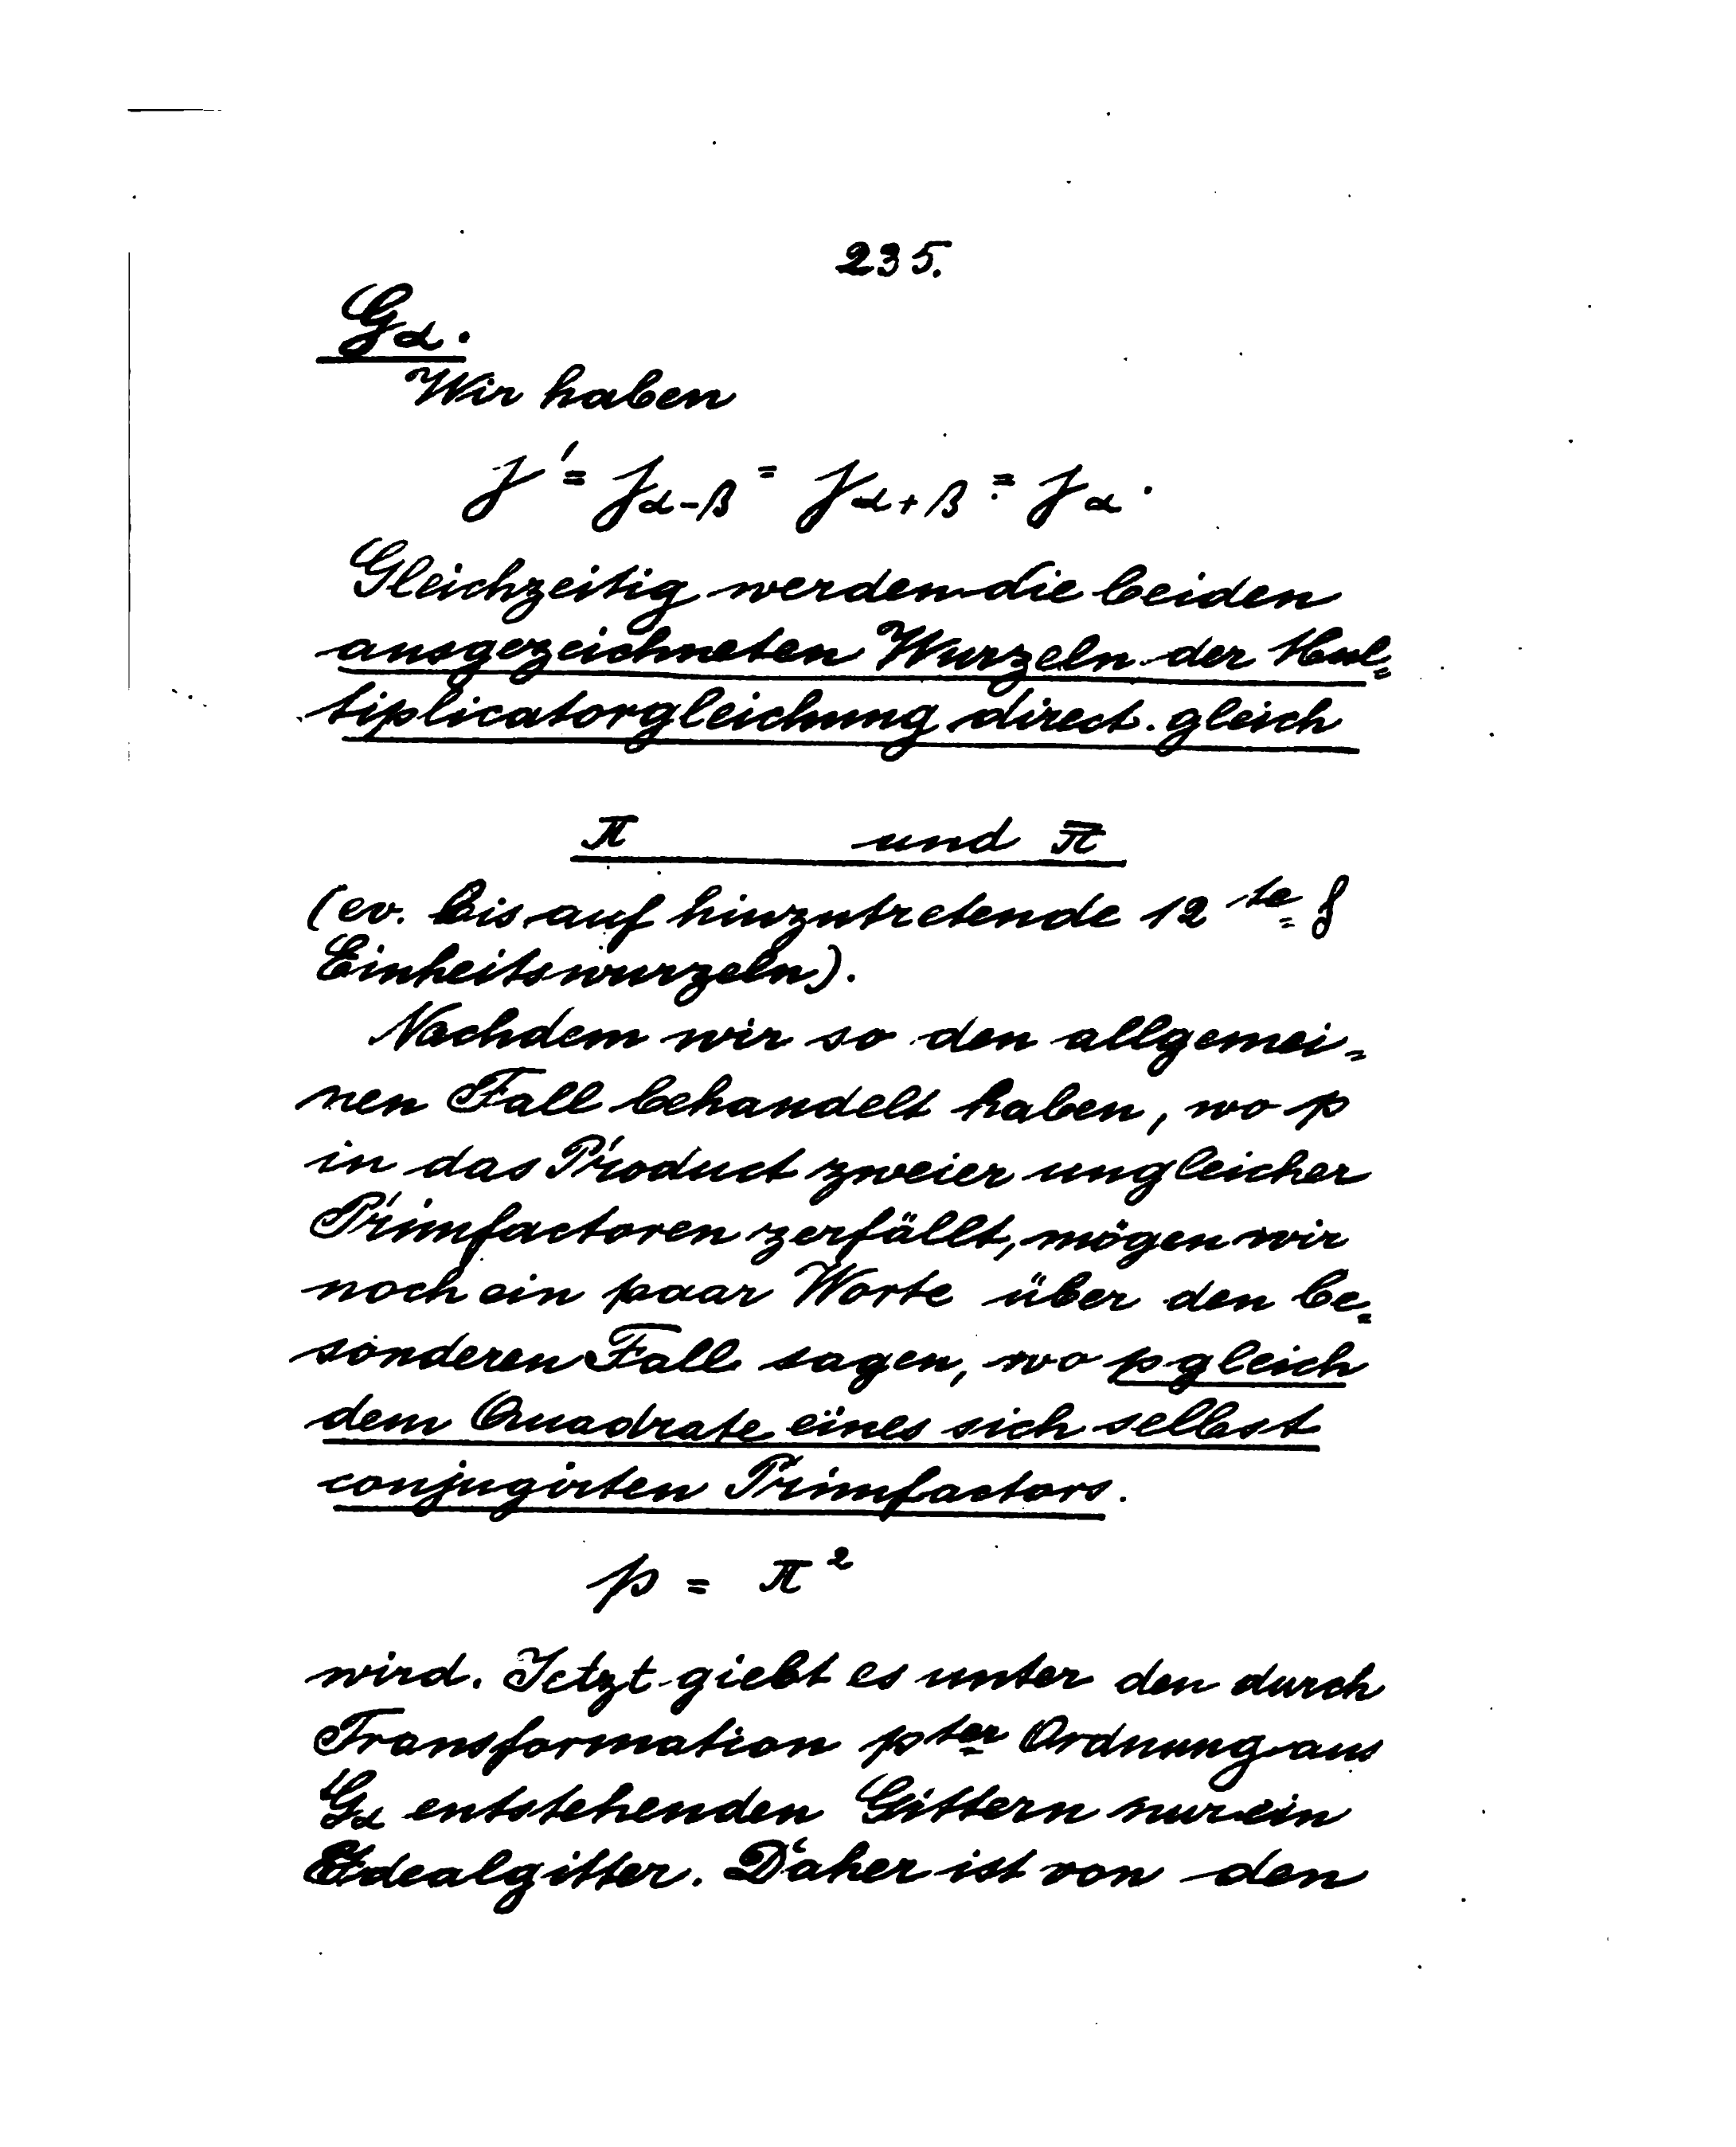 235.
Gα.
Wir haben
J' = Jα-β = Jα+β = Jα.
Gleichzeitig werden die beiden
ausgezeichneten Wurzeln der Mul=
tiplicatorgleichung direct gleich
π und π̅
(ev. bis auf hinzutretende 12te
Einheitswurzeln).
Nachdem wir so den allgemei=
nen Fall behandelt haben, wo p
in das Product zweier ungleicher
Primfactoren zerfällt, mögen wir
noch ein paar Worte über den be=
sonderen Fall sagen, wo p gleich
dem Quadrate eines sich selbst
conjugirten Primfactors.
p = π²
wird. Jetzt giebt es unter den durch
Transformation pter Ordnung aus
Gα entstehenden Gittern nur ein
Idealgitter. Daher ist von den